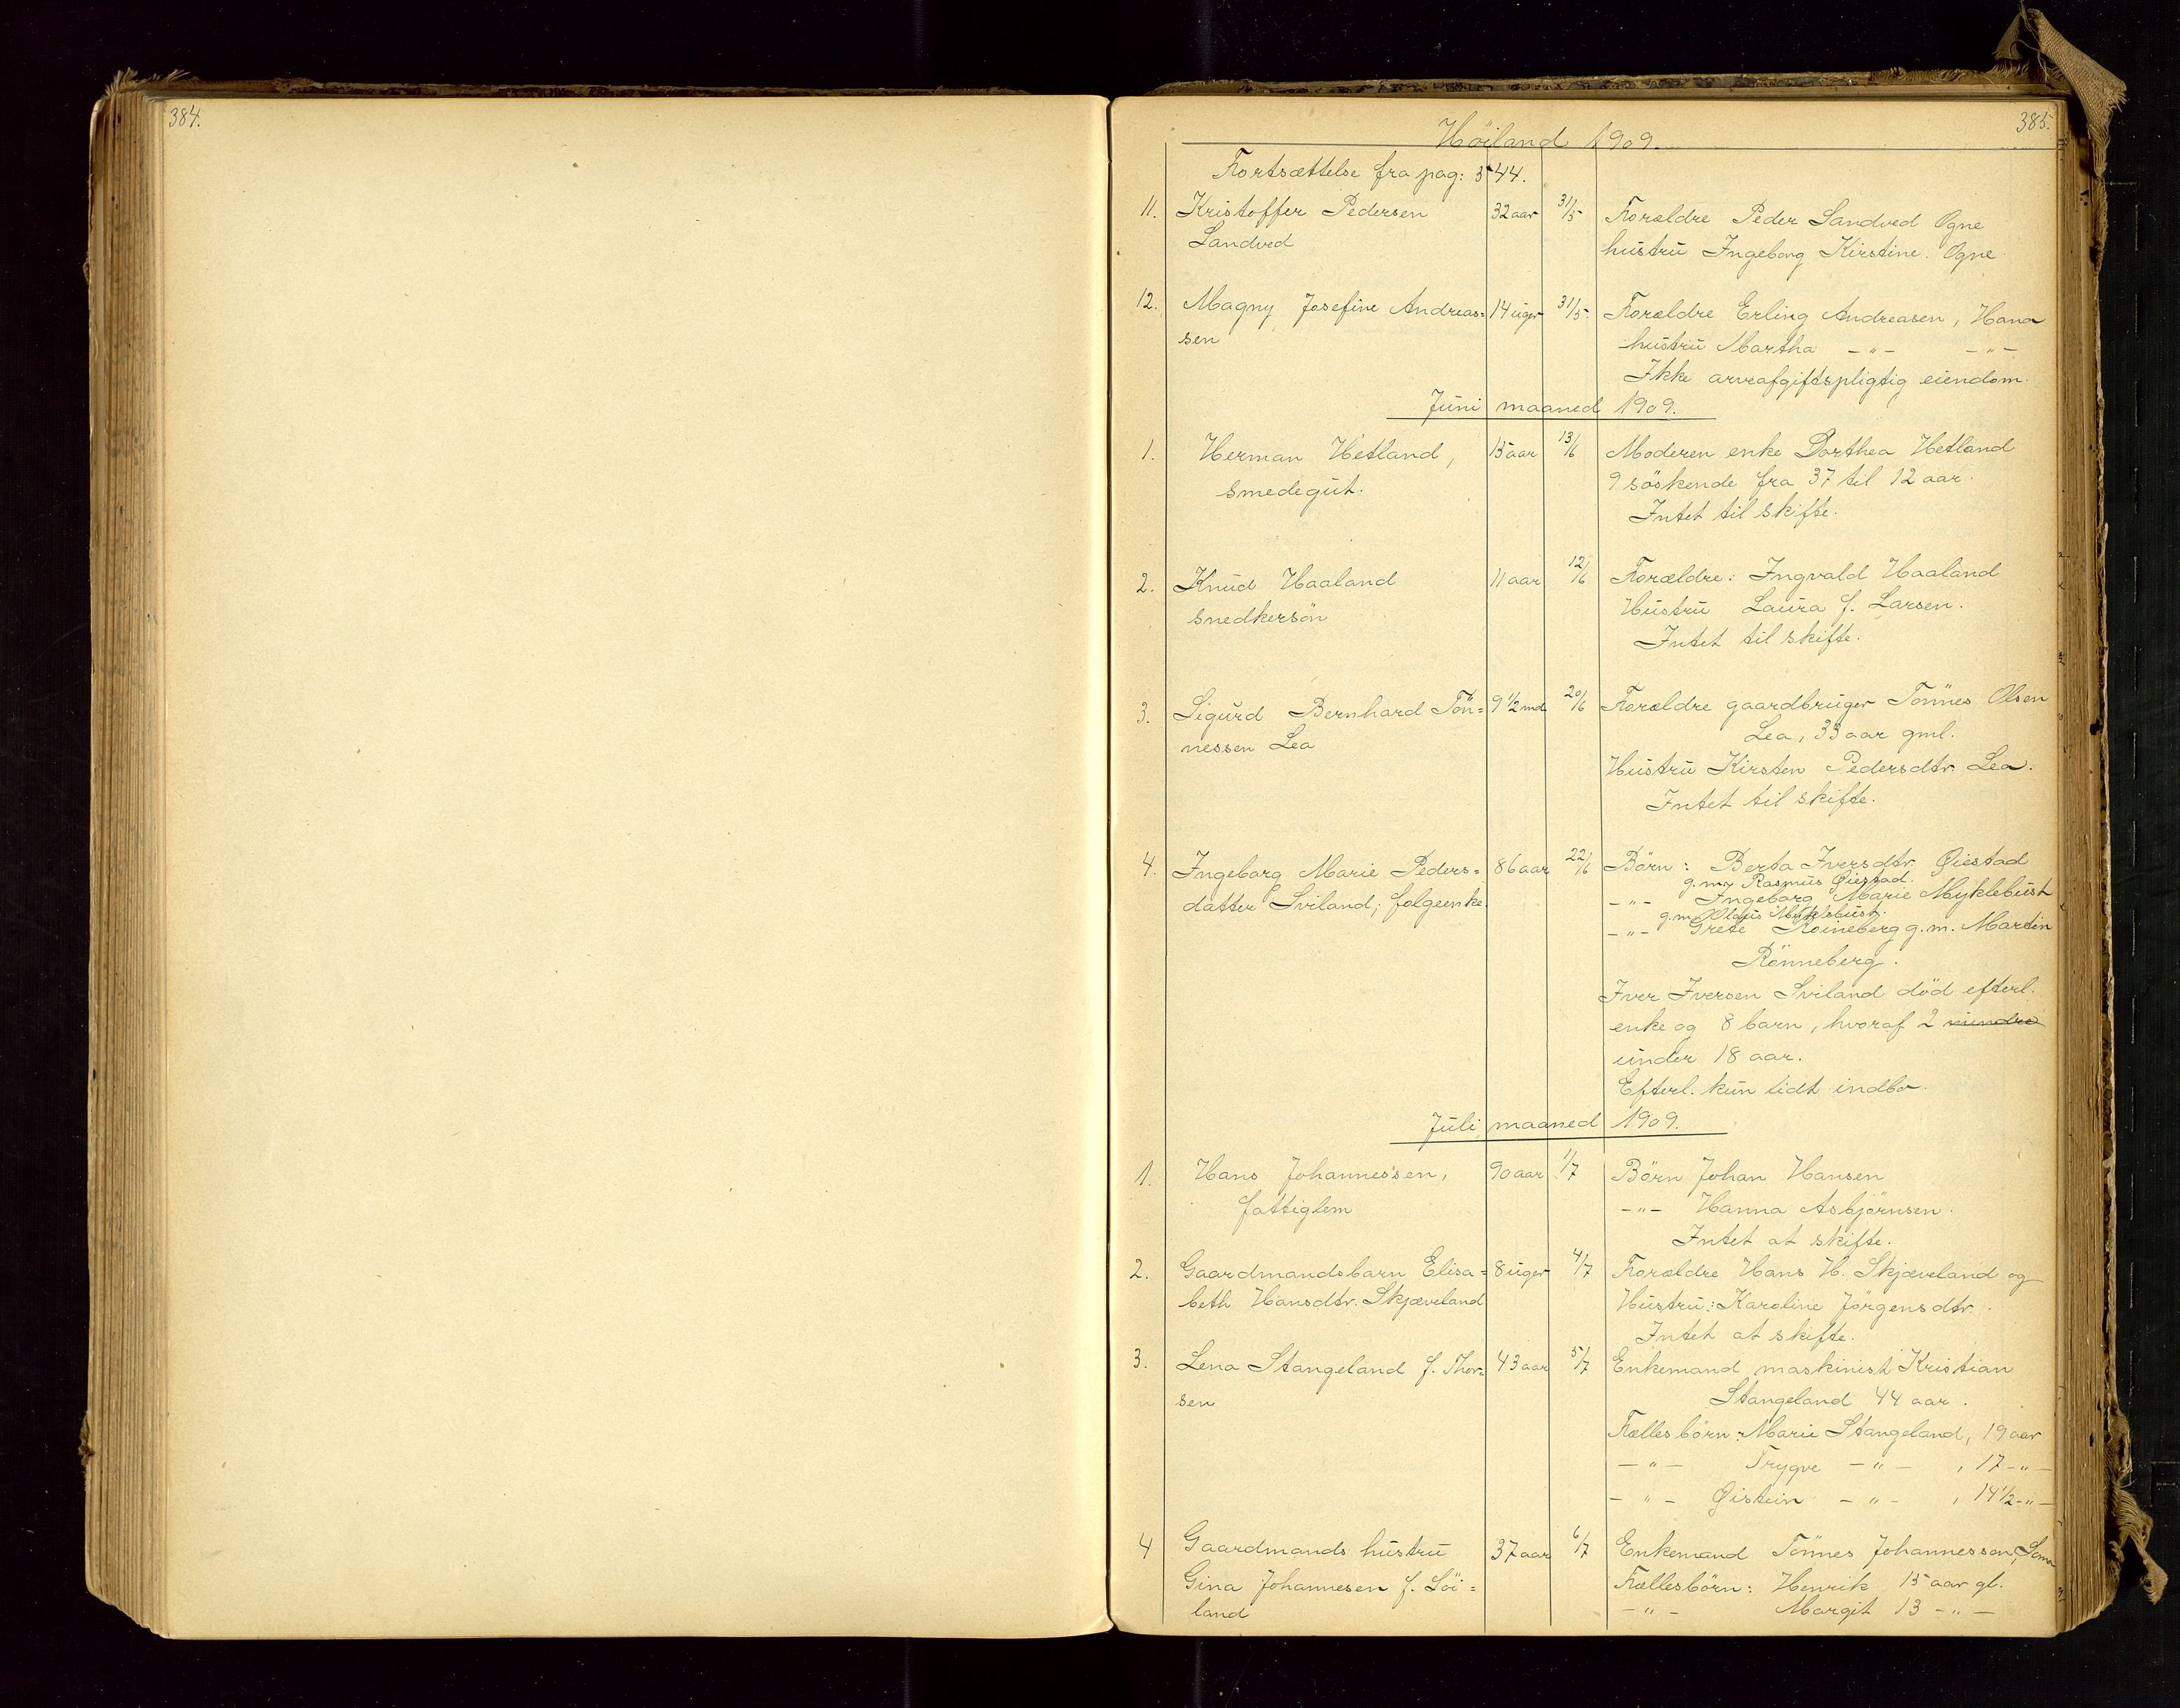 384.
385.
Höiland 1909.
Fortsættelse fra pag: 344.
11. Kristoffer Pedersen 32 aar 31/5 Forældre Peder Sandved Ogne
Sandved hustru Ingeborg Kirstine. Ogne
12. Magny Josefine Andreas= 14 uger 31/5. Forældre Erling Andreasen, Hana
sen hustru Martha -"- -"-
Ikke arveafgiftspligtig eiendom.
Juni maaned 1909.
1. Herman Hetland, 15 aar 13/6 Moderen enke Dorthea Hetland
smedegut. 9 söskende fra 37 til 12 aar.
Intet til skifte.
2. Knud Haaland 11 aar 12/6 Forældre: Ingvald Haaland
snedkersön Hustru Laura f. Larsen.
Intet til skifte.
3. Sigurd Bernhard Tön= 9 1/2 md 20/6 Forældre gaardbruger Tönnes Olsen
nessen Lea Lea, 33 aar gml.
Hustru Kirsten Pedersdtr. Lea.
Intet til skifte.
4. Ingeborg Marie Peders= 86 aar 22/6 Börn: Berta Iversdtr. Øiestad
g.m. Rasmus Øiestad.
datter Sviland, folgeenke. -"- Ingeborg Marie Myklebust
g.m. Olaus Myklebust.
-"- Grete Roineberg g.m. Martin
Rönneberg.
Iver Iversen Sviland död efterl.
enke og 8 barn, hvoraf 2
under 18 aar.
Efterl. kun lidt indbo.
Juli maaned 1909.
1. Hans Johannessen, 90 aar 1/7 Börn Johan Hansen
fattiglem -"- Hanna Asbjörnsen.
Intet at skifte.
2. Gaardmandsbarn Elisa= 8 uger 4/7 Forældre Hans H. Skjæveland og
beth Hansdtr. Skjæveland Hustru: Karoline Jörgensdtr.
Intet at skifte.
3. Lena Stangeland f. Thor= 43 aar 5/7 Enkemand maskinist Kristian
sen Stangeland 44 aar.
Fællesbörn: Marie Stangeland, 19 aar
-"- Trygve -"- , 17 -"-
-"- Øistein -"- , 14 1/2 -"-
4 Gaardmands hustru 37 aar 6/7 Enkemand Tönnes Johannessen, Soma
Gina Johannesen f. Löi= Fællesbörn: Henrik 15 aar gl.
land -"- Margit 13 -"-